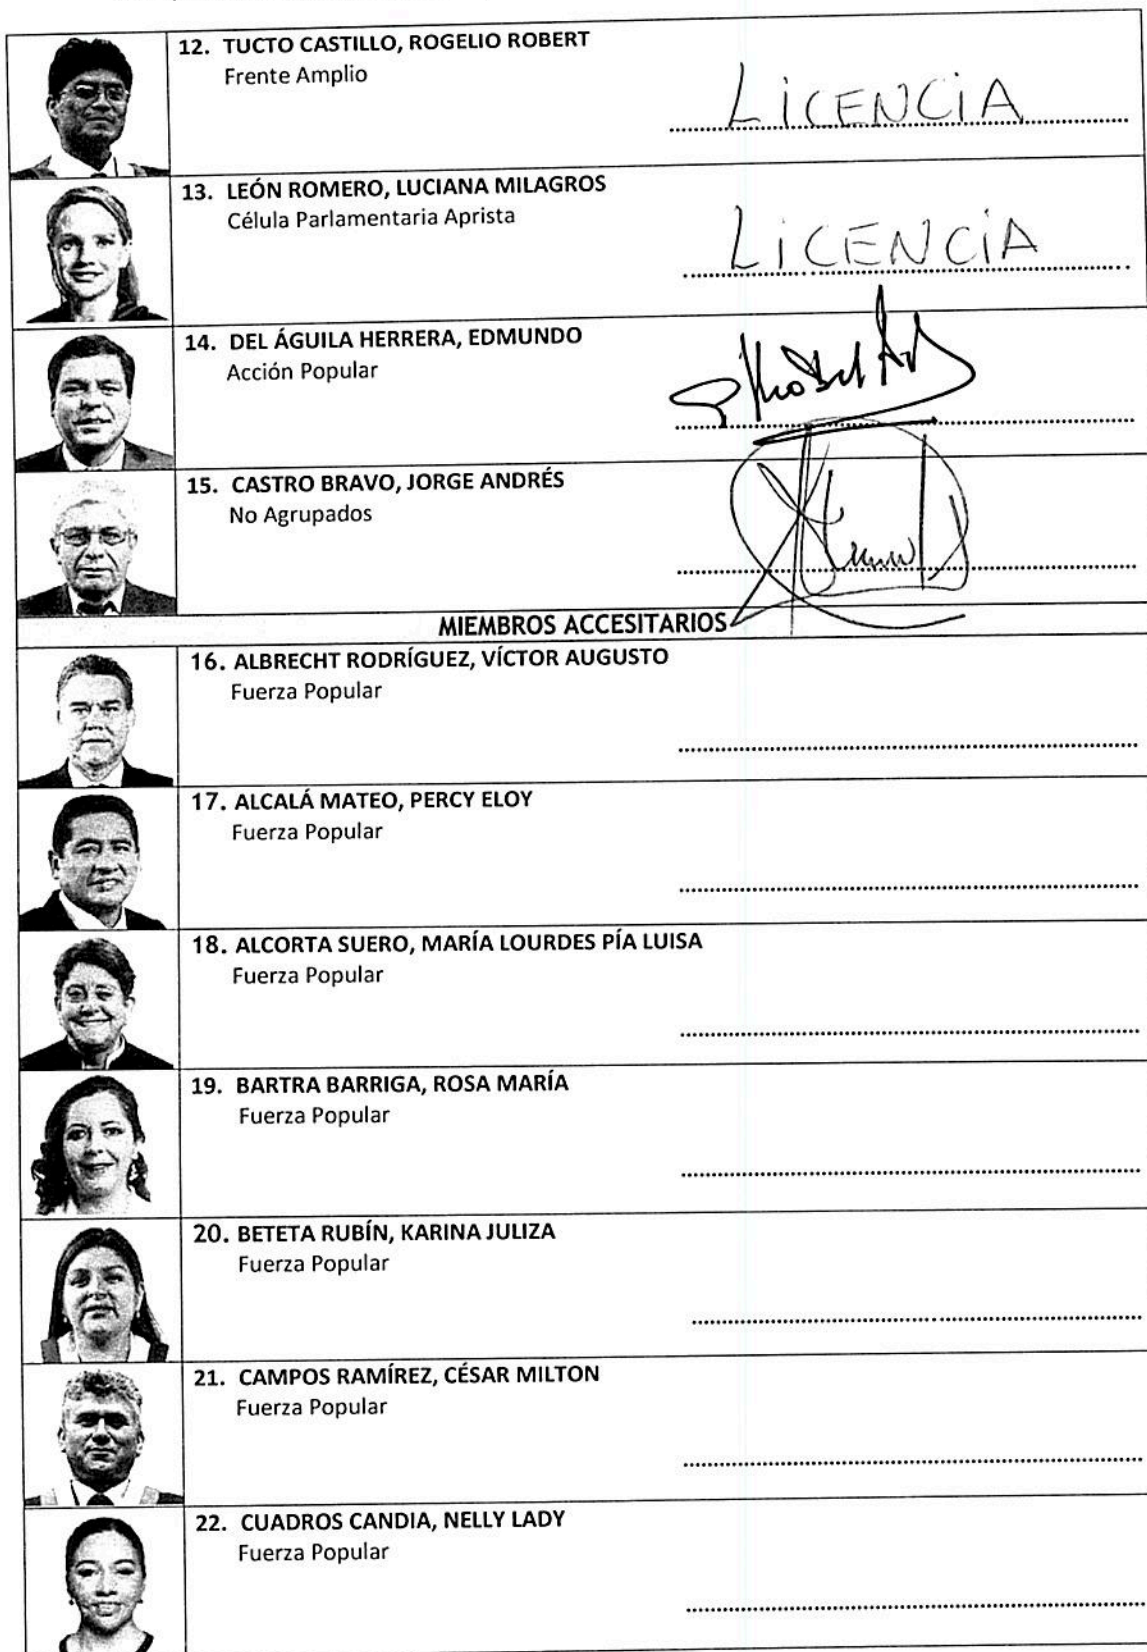 12. TUCTO CASTILLO, ROGELIO ROBERT
Frente Amplio
LiCENCiA
13. LEÓN ROMERO, LUCIANA MILAGROS
Célula Parlamentaria Aprista
LiCENCiA
14. DEL ÁGUILA HERRERA, EDMUNDO
Acción Popular
15. CASTRO BRAVO, JORGE ANDRÉS
No Agrupados
MIEMBROS ACCESITARIOS
16. ALBRECHT RODRÍGUEZ, VÍCTOR AUGUSTO
Fuerza Popular
17. ALCALÁ MATEO, PERCY ELOY
Fuerza Popular
18. ALCORTA SUERO, MARÍA LOURDES PÍA LUISA
Fuerza Popular
19. BARTRA BARRIGA, ROSA MARÍA
Fuerza Popular
20. BETETA RUBÍN, KARINA JULIZA
Fuerza Popular
21. CAMPOS RAMÍREZ, CÉSAR MILTON
Fuerza Popular
22. CUADROS CANDIA, NELLY LADY
Fuerza Popular